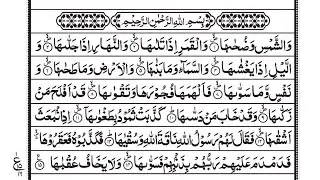 بِسْمِ اللهِ الرَّحْمٰنِ الرَّحِيْمِ
وَالشَّمْسِ وَضُحٰىهَا ۝ وَالْقَمَرِ اِذَا تَلٰىهَا ۝ وَالنَّهَارِ اِذَا جَلّٰىهَا ۝
وَالَّيْلِ اِذَا يَغْشٰىهَا ۝ وَالسَّمَآءِ وَمَا بَنٰىهَا ۝ وَالْاَرْضِ وَمَا طَحٰىهَا ۝
وَنَفْسٍ وَّمَا سَوّٰىهَا ۝ فَاَلْهَمَهَا فُجُوْرَهَا وَتَقْوٰىهَا ۝ قَدْ اَفْلَحَ مَنْ
زَكّٰىهَا ۝ وَقَدْ خَابَ مَنْ دَسّٰىهَا ۝ كَذَّبَتْ ثَمُوْدُ بِطَغْوٰىهَا ۝ اِذِ انْۢبَعَثَ
اَشْقٰىهَا ۝ فَقَالَ لَهُمْ رَسُوْلُ اللهِ نَاقَةَ اللهِ وَسُقْيٰهَا ۝ فَكَذَّبُوْهُ فَعَقَرُوْهَا
فَدَمْدَمَ عَلَيْهِمْ رَبُّهُمْ بِذَنْۢبِهِمْ فَسَوّٰىهَا ۝ وَلَا يَخَافُ عُقْبٰهَا ۝